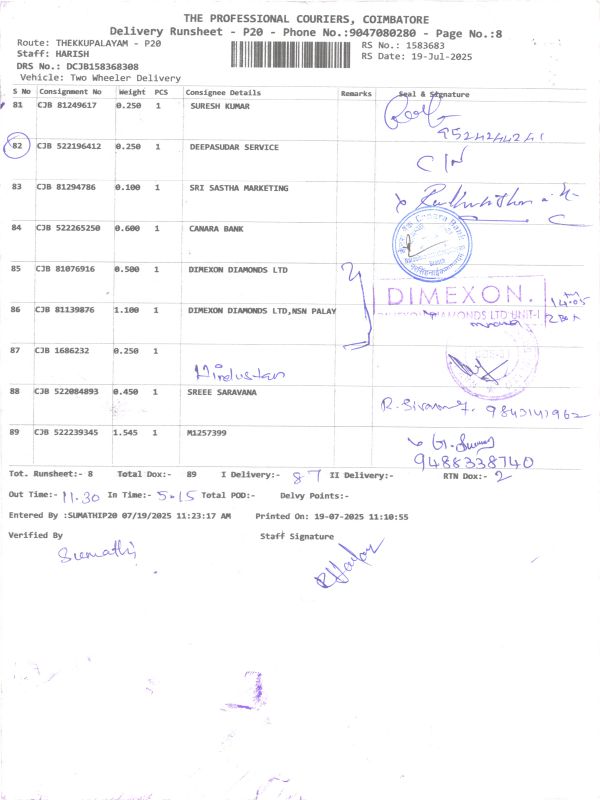 THE PROFESSIONAL COURIERS, COIMBATORE
Delivery Runsheet - P20 - Phone No.:9047080280 - Page No.:8
Route: THEKKUPALAYAM - P20
Staff: HARISH
RS No.: 1583683
RS Date: 19-Jul-2025
DRS No.: DCJB158368308
Vehicle: Two Wheeler Delivery
S No Consignment No Weight PCS Consignee Details Remarks Seal & Signature
81 CJB 81249617 0.250 1 SURESH KUMAR
9524244241
82 CJB 522196412 0.250 1 DEEPASUDAR SERVICE
C/N
83 CJB 81294786 0.100 1 SRI SASTHA MARKETING
84 CJB 522265250 0.600 1 CANARA BANK
Canara Bank
85 CJB 81076916 0.500 1 DIMEXON DIAMONDS LTD
DIMEXON. 14:05
86 CJB 81139876 1.100 1 DIMEXON DIAMONDS LTD,NSN PALAY
DIAMONDS LTD UNIT-I
87 CJB 1686232 0.250 1
Hindustan
88 CJB 522084893 0.450 1 SREEE SARAVANA
9842141962
89 CJB 522239345 1.545 1 M1257399
9488338740
Tot. Runsheet:- 8 Total Dox:- 89 I Delivery:- 87 II Delivery:- RTN Dox:- 2
Out Time:- 11.30 In Time:- 5.15 Total POD:- Delvy Points:-
Entered By :SUMATHIP20 07/19/2025 11:23:17 AM Printed On: 19-07-2025 11:10:55
Verified By Staff Signature
Sumathi